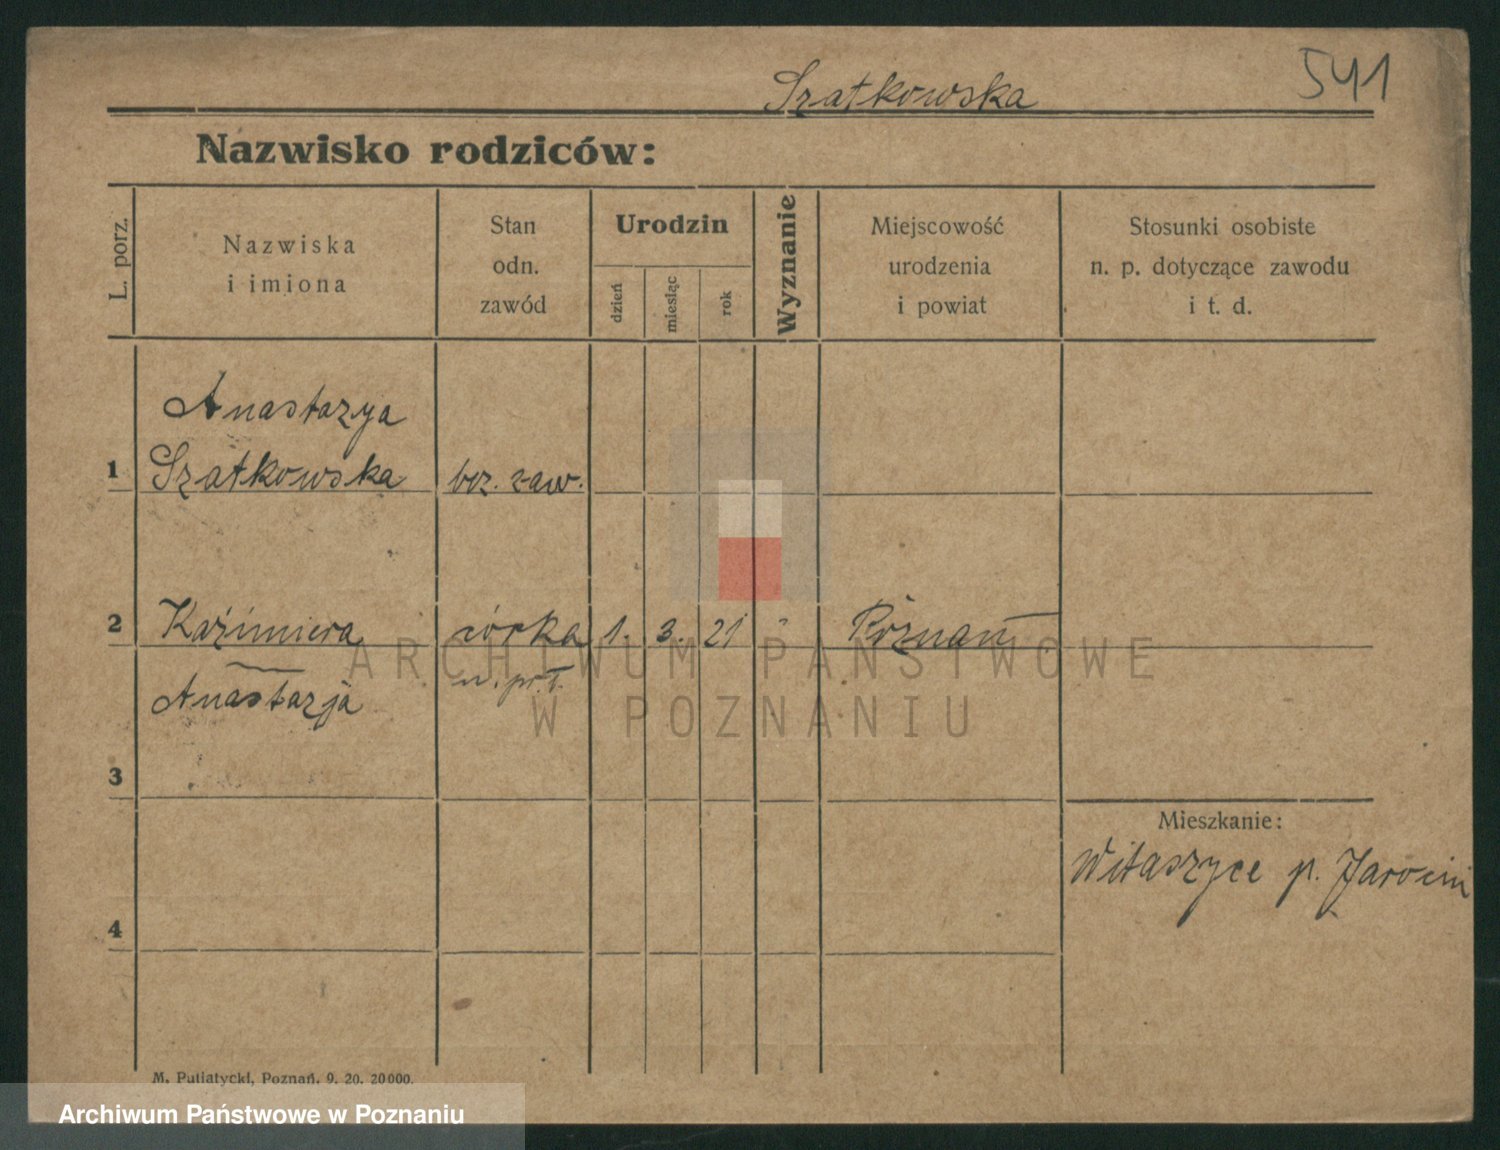 541
Szatkowska
Nazwisko rodziców:
L. porz.
Nazwiska
i imiona
Stan
odn.
zawód
Urodzin
dzień
miesiąc
rok
Wyznanie
Miejscowość
urodzenia
i powiat
Stosunki osobiste
n. p. dotyczące zawodu
i t. d.
Anastazya
1 Szatkowska bez. zaw.
2 Kaźimiera córka 1. 3. 21 " Poznań
Anastazja
3
Mieszkanie:
Witaszyce p. Jarocin
4
M. Putiatycki, Poznań. 9. 20. 20000.
ARCHIWUM PAŃSTWOWE
W POZNANIU
Archiwum Państwowe w Poznaniu